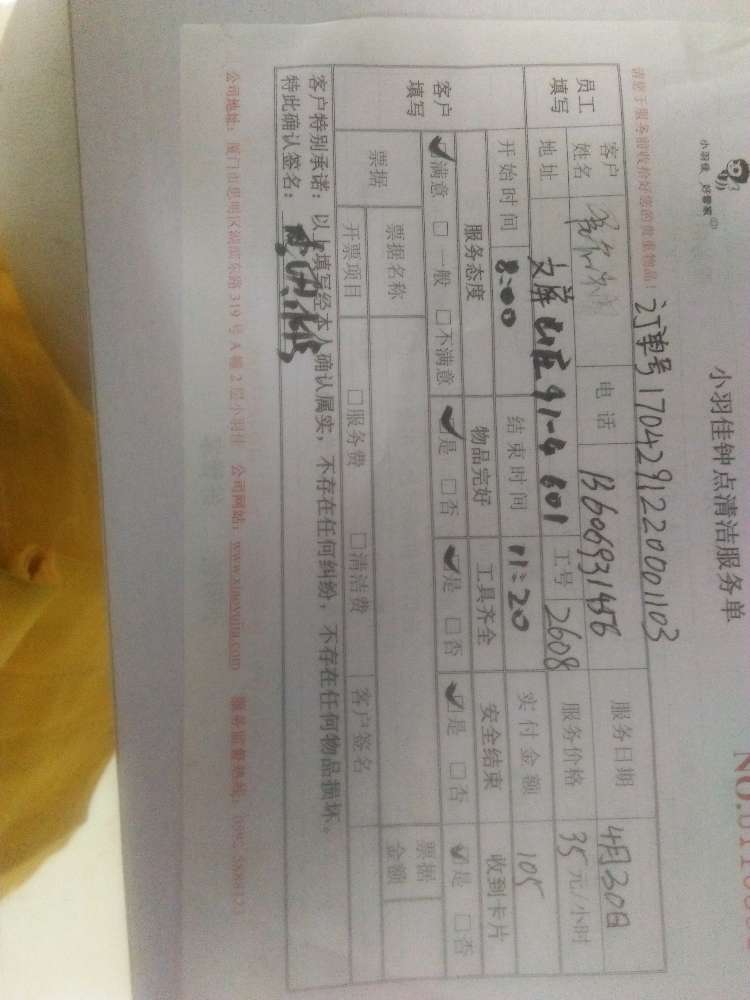 小羽佳 好管家
小羽佳钟点清洁服务单
订单号1704291220001103
请您于服务前收存好您的贵重物品！
员工填写
客户姓名
电话 13606931456
服务日期 4月30日
地址 文屏山庄91-4 601
工号 2608
服务价格 35元/小时
开始时间 8:00
结束时间 11:20
实付金额 105
客户填写
服务态度 物品完好 工具齐全 安全结束 收到卡片
☑满意 □一般 □不满意 ☑是 □否 ☑是 □否 ☑是 □否 ☑是 □否
票据
票据名称
票据金额
开票项目 □服务费 □清洁费 客户签名
客户特别承诺：以上填写经本人确认属实，不存在任何纠纷，不存在任何物品损坏。
特此确认签名：
公司地址：厦门市思明区湖滨东路319号A幢2层小羽佳 公司网站：www.xiaoyujia.com 服务监督热线：